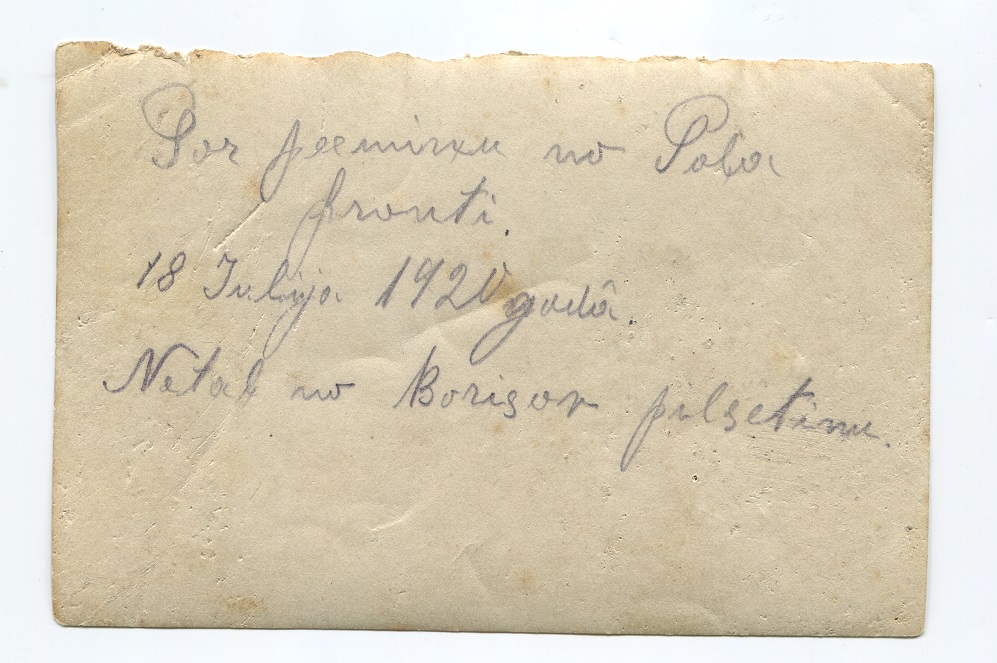 Por peeminxu no Pola
fronti.
18 Julija 1920 godâ.
Netal no Borisov pilsetinu.